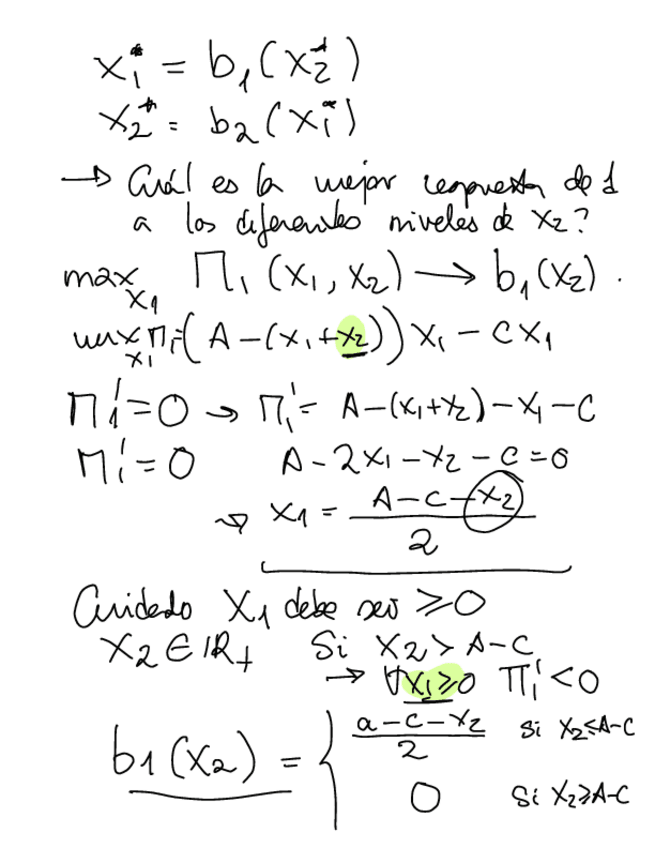 x₁* = b₁(x₂*)
x₂* = b₂(x₁*)
→ Cuál es la mejor respuesta de 1
a los diferentes niveles de x₂?
max Π₁(x₁, x₂) → b₁(x₂).
x₁
max Π₁=(A-(x₁+x₂))x₁-cx₁
x₁
Π₁'=0 → Π₁'= A-(x₁+x₂)-x₁-c
Π₁'=0 A-2x₁-x₂-c=0
→ x₁ = (A-c-x₂)/2
Cuidado x₁ debe ser ≥0
x₂ ∈ ℝ₊ Si x₂ > A-C
→ ∀x₁≥0 Π₁'<0
b₁(x₂) = { (a-c-x₂)/2 si x₂≤A-C
0 si x₂≥A-C